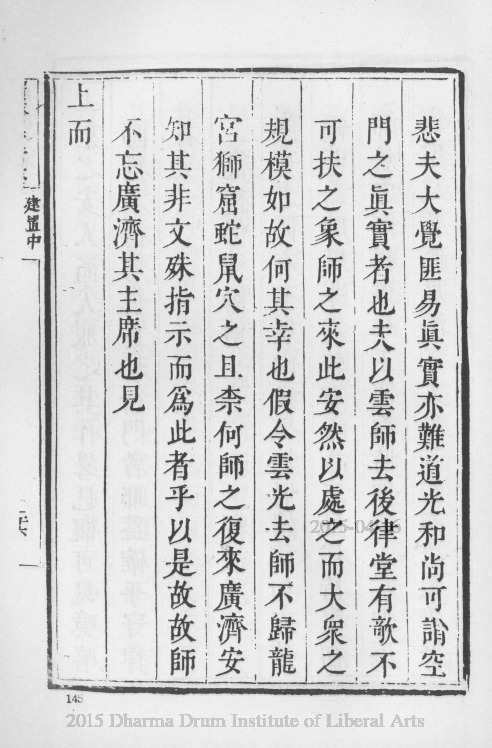 悲夫大覺匪易眞實亦難道光和尚可謂空
門之眞實者也夫以雲師去後律堂有欹不
可扶之象師之來此安然以處之而大衆之
規模如故何其幸也假令雲光去師不歸龍
宮獅窟蛇鼠穴之且柰何師之復來廣濟安
知其非文殊指示而爲此者乎以是故故師
不忘廣濟其主席也見
上而
建置中
145
2015 Dharma Drum Institute of Liberal Arts